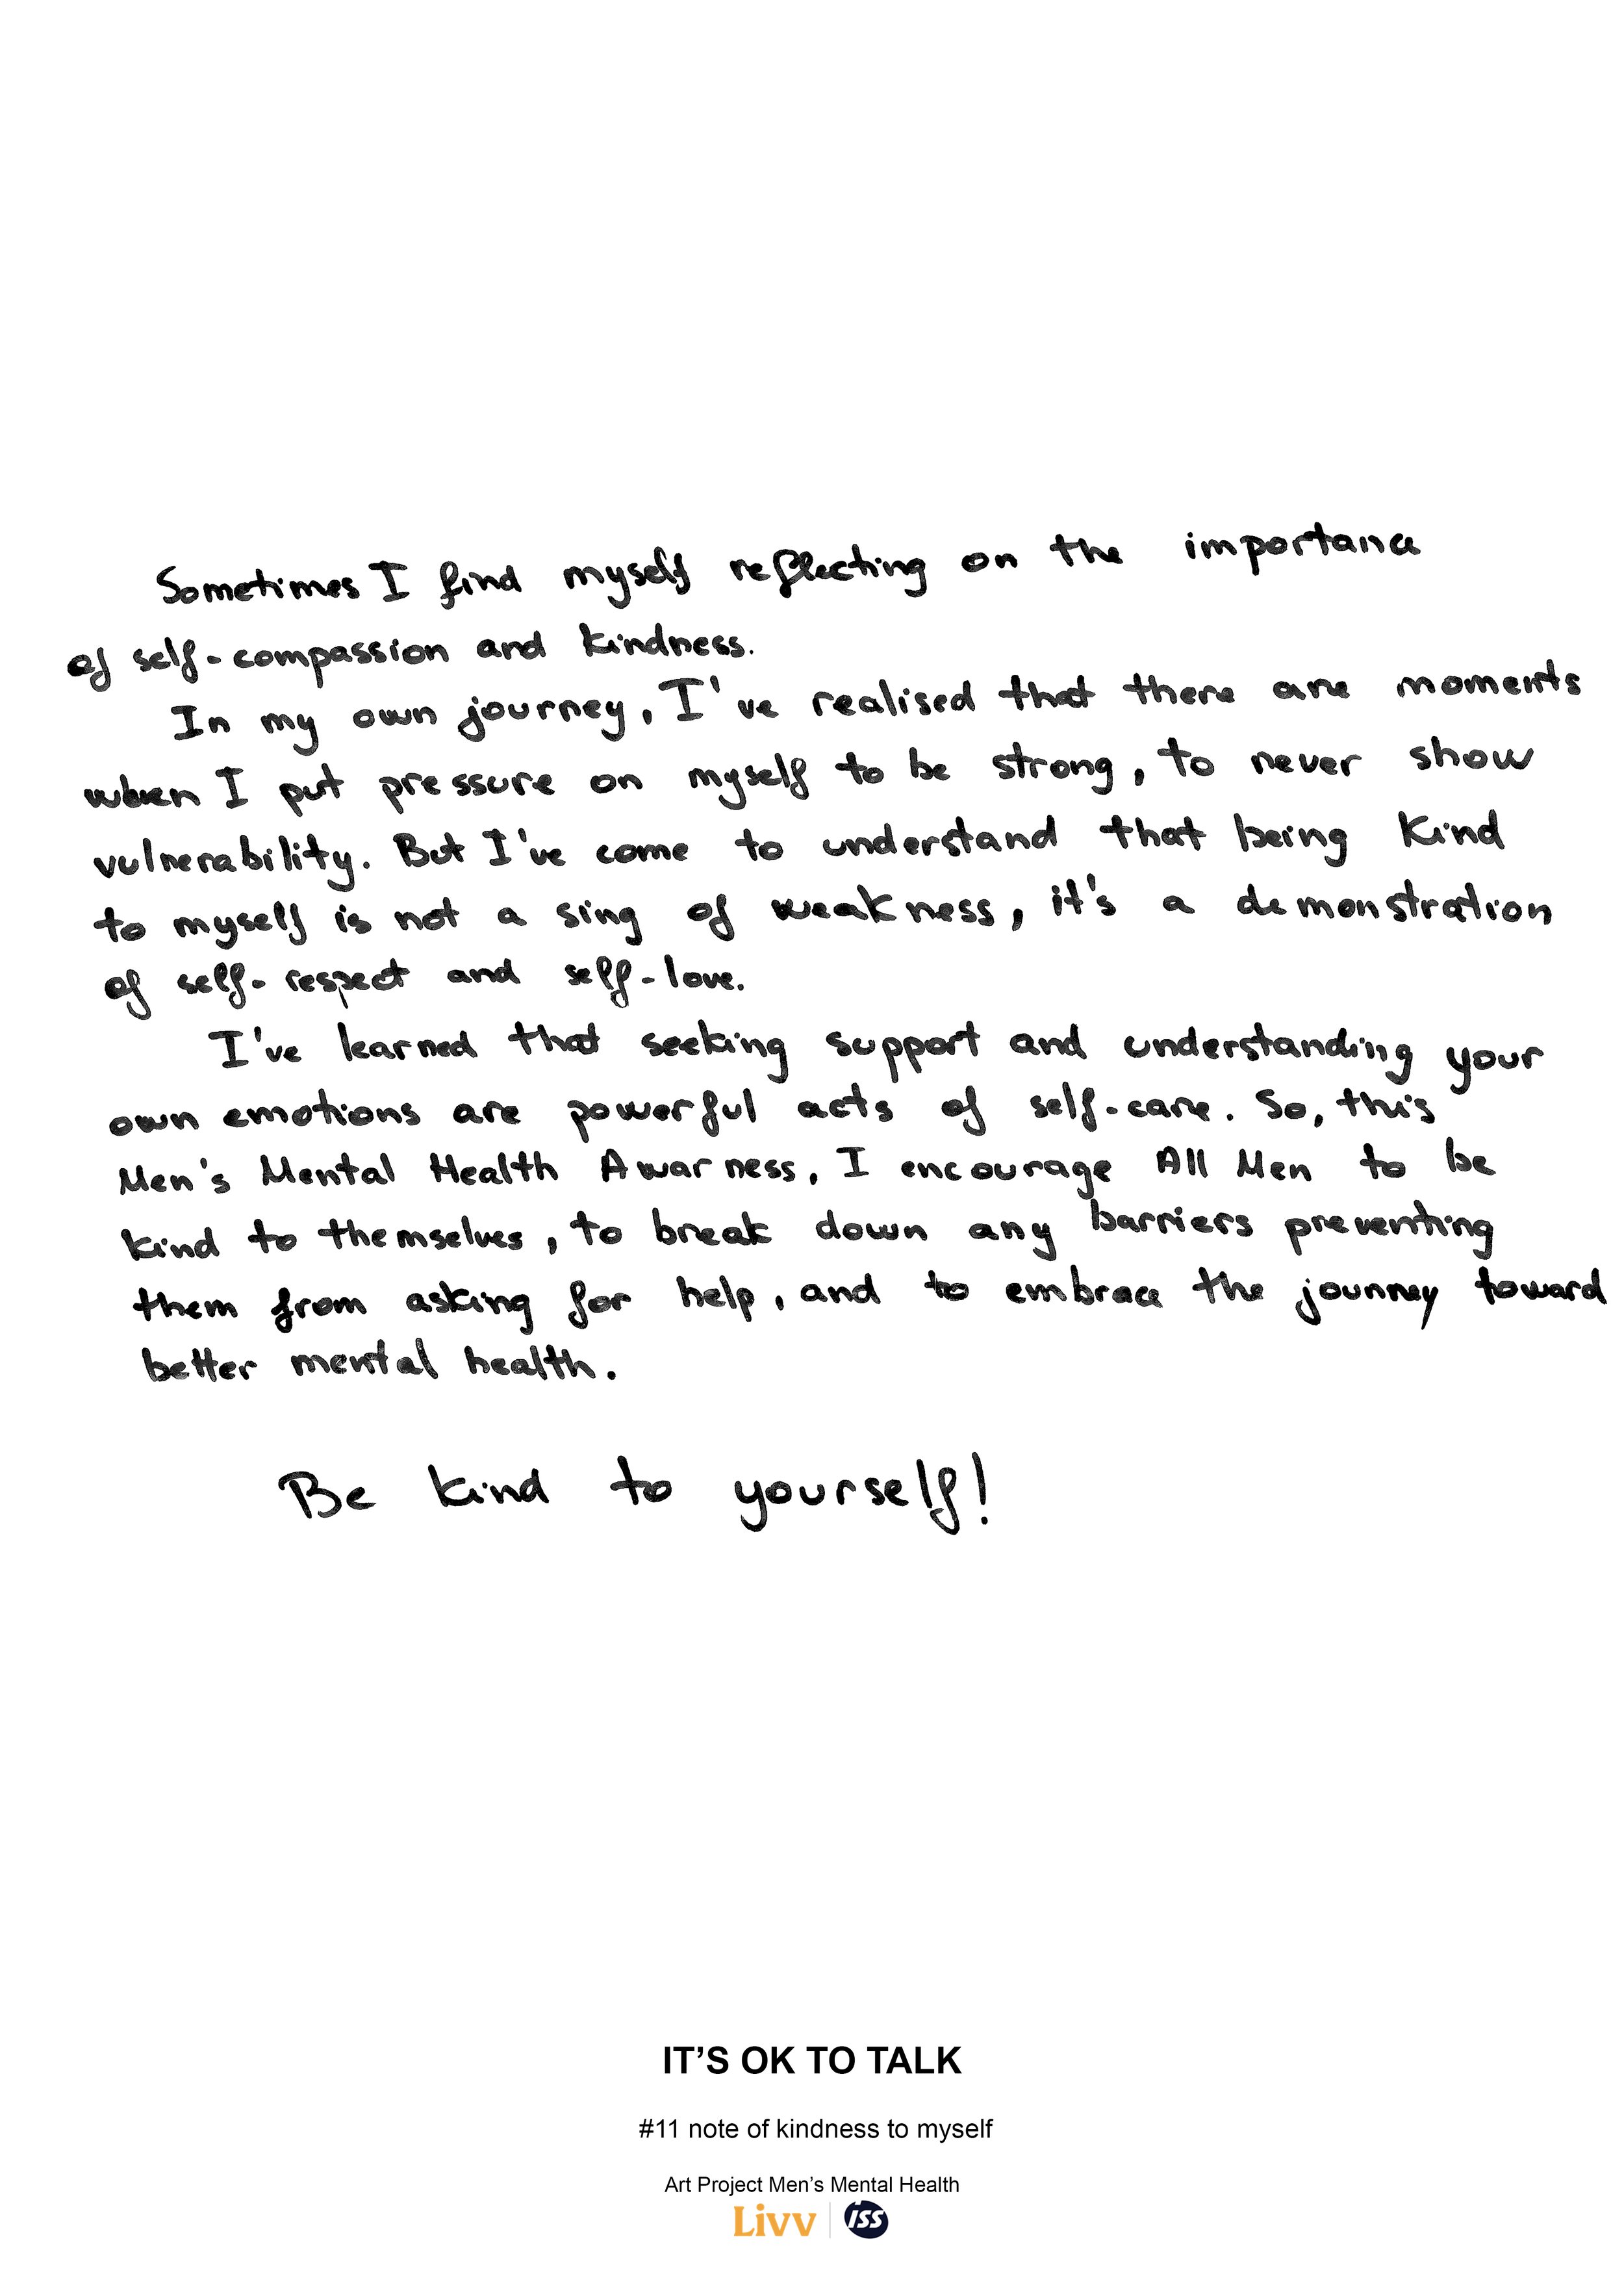 Sometimes I find myself reflecting on the importance
of self-compassion and kindness.
In my own journey, I've realised that there are moments
when I put pressure on myself to be strong, to never show
vulnerability. But I've come to understand that being kind
to myself is not a sing of weakness, it's a demonstration
of self-respect and self-love.
I've learned that seeking support and understanding your
own emotions are powerful acts of self-care. So, this
Men's Mental Health Awarness, I encourage All Men to be
kind to themselves, to break down any barriers preventing
them from asking for help, and to embrace the journey toward
better mental health.
Be kind to yourself!
IT'S OK TO TALK
#11 note of kindness to myself
Art Project Men's Mental Health
Livv ISS